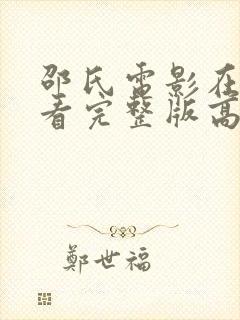 邵氏電影在
看完整版高
鄭世福